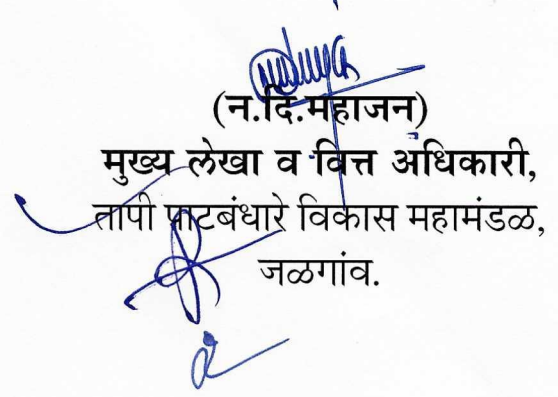 (न.दि.महाजन)
मुख्य लेखा व वित्त अधिकारी,
तापी पाटबंधारे विकास महामंडळ,
जळगांव.